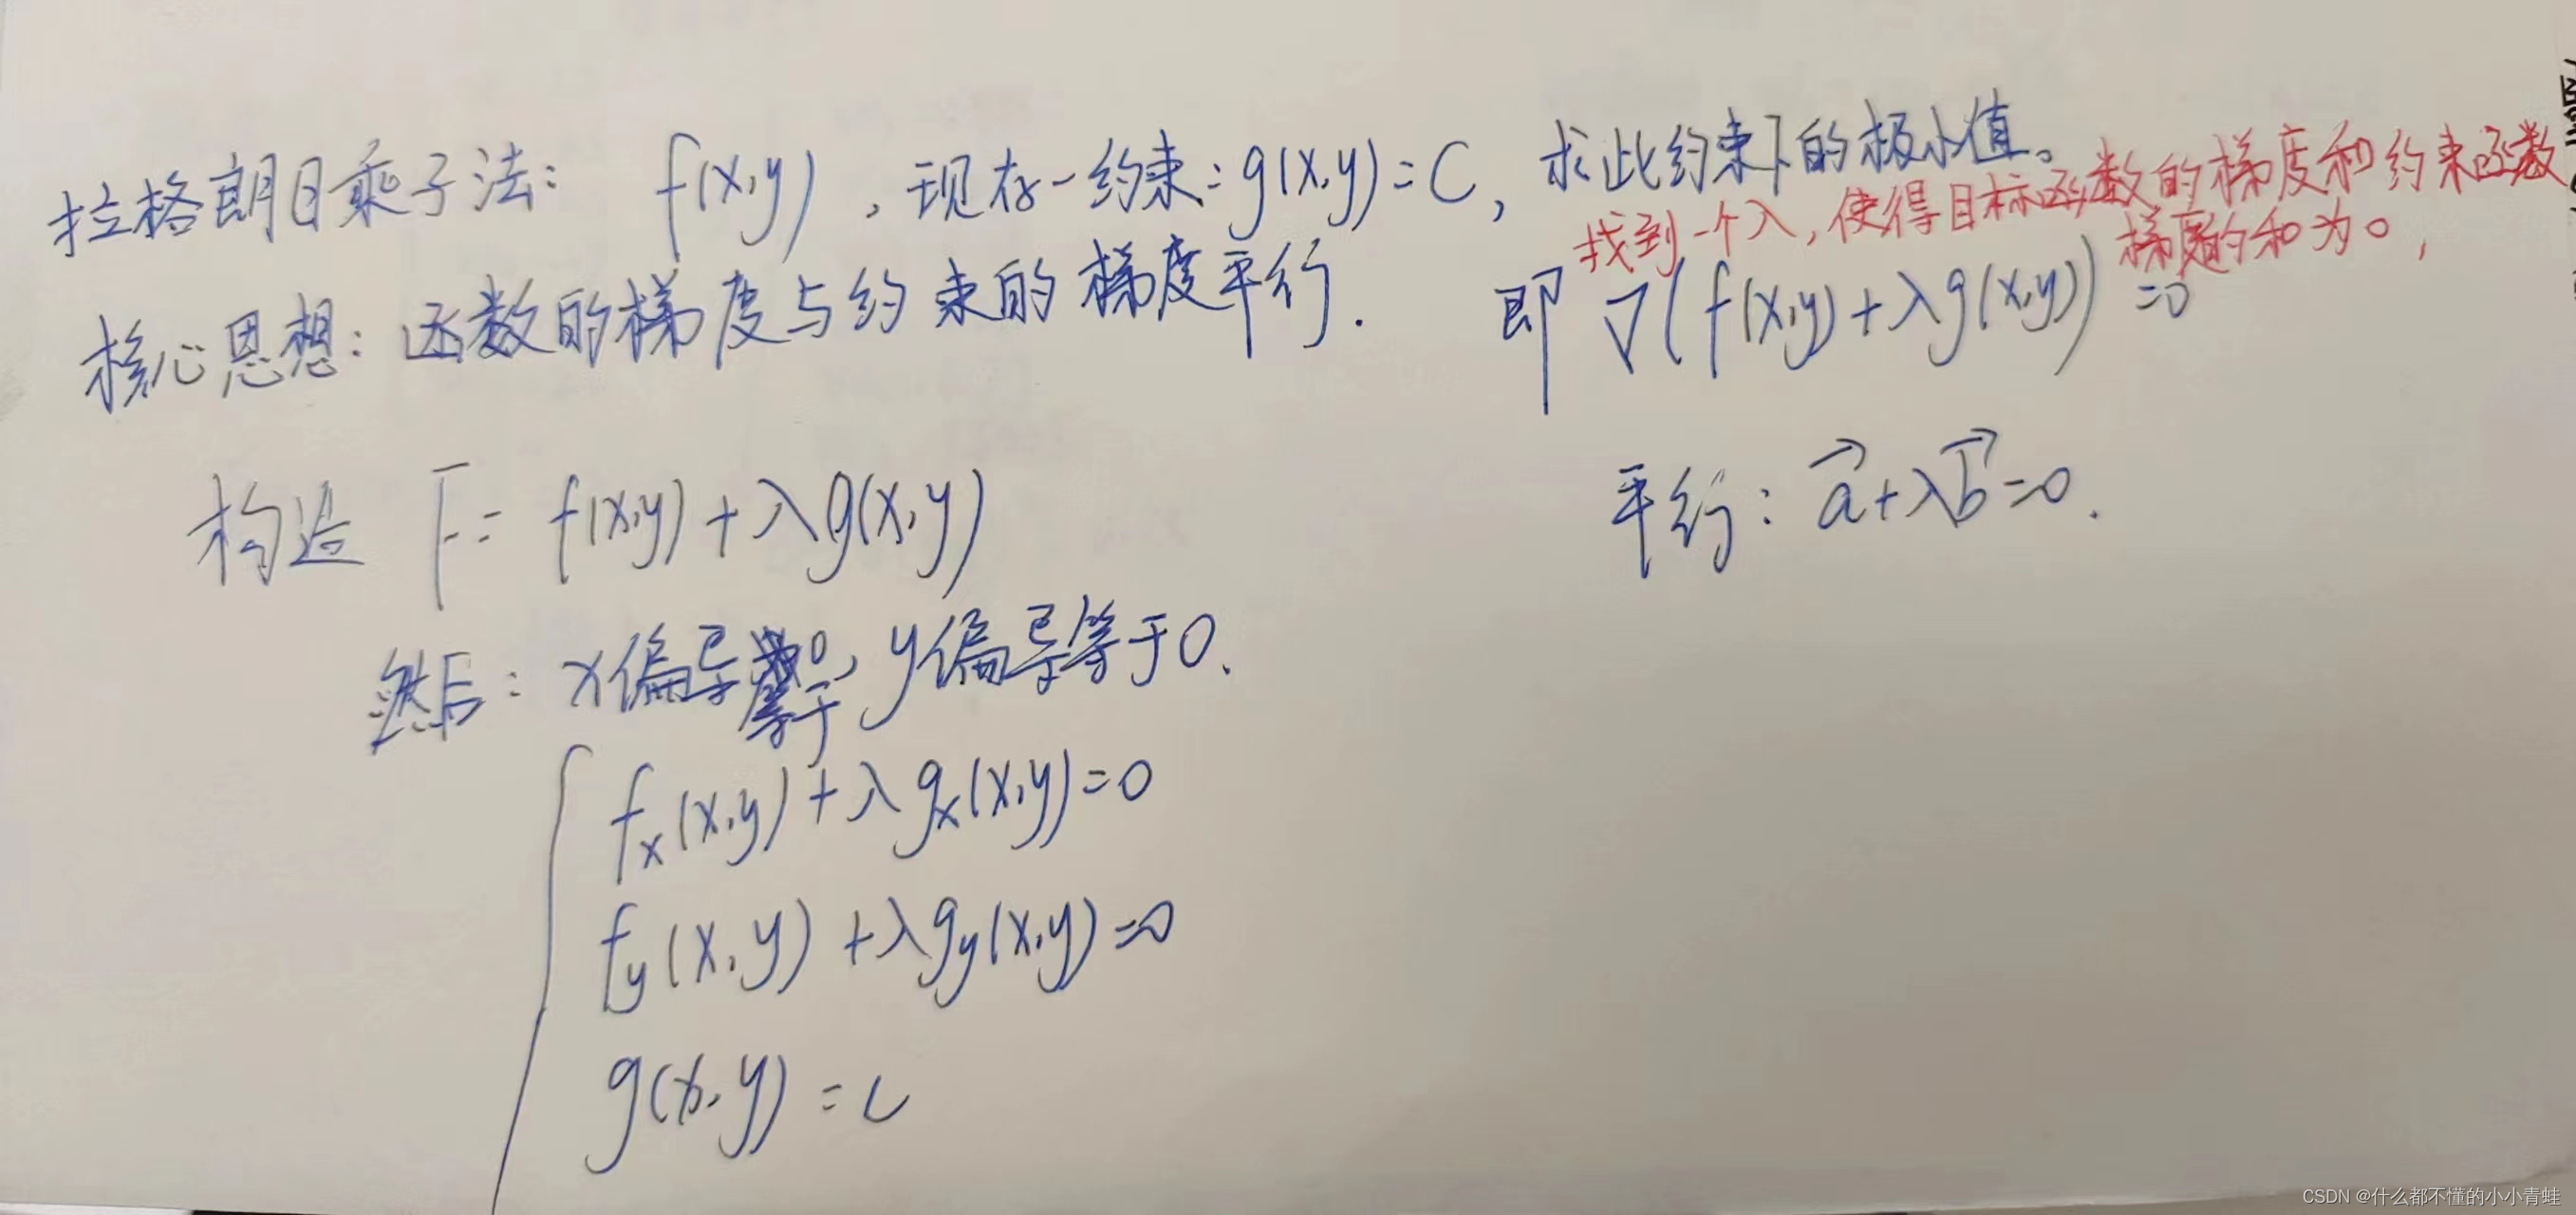 拉格朗日乘子法： f(x,y) ，现存一约束：g(x,y)=C，求此约束下的极小值。
找到一个λ，使得目标函数的梯度和约束函数
梯度的和为0，
核心思想：函数的梯度与约束的梯度平行. 即 ∇(f(x,y)+λg(x,y))=0
构造 F= f(x,y)+λg(x,y)
平行：a⃗+λb⃗=0.
然后：x偏导等于0，y偏导等于0.
f_x(x,y)+λg_x(x,y)=0
f_y(x,y)+λg_y(x,y)=0
g(x,y)=C
CSDN @什么都不懂的小小青蛙